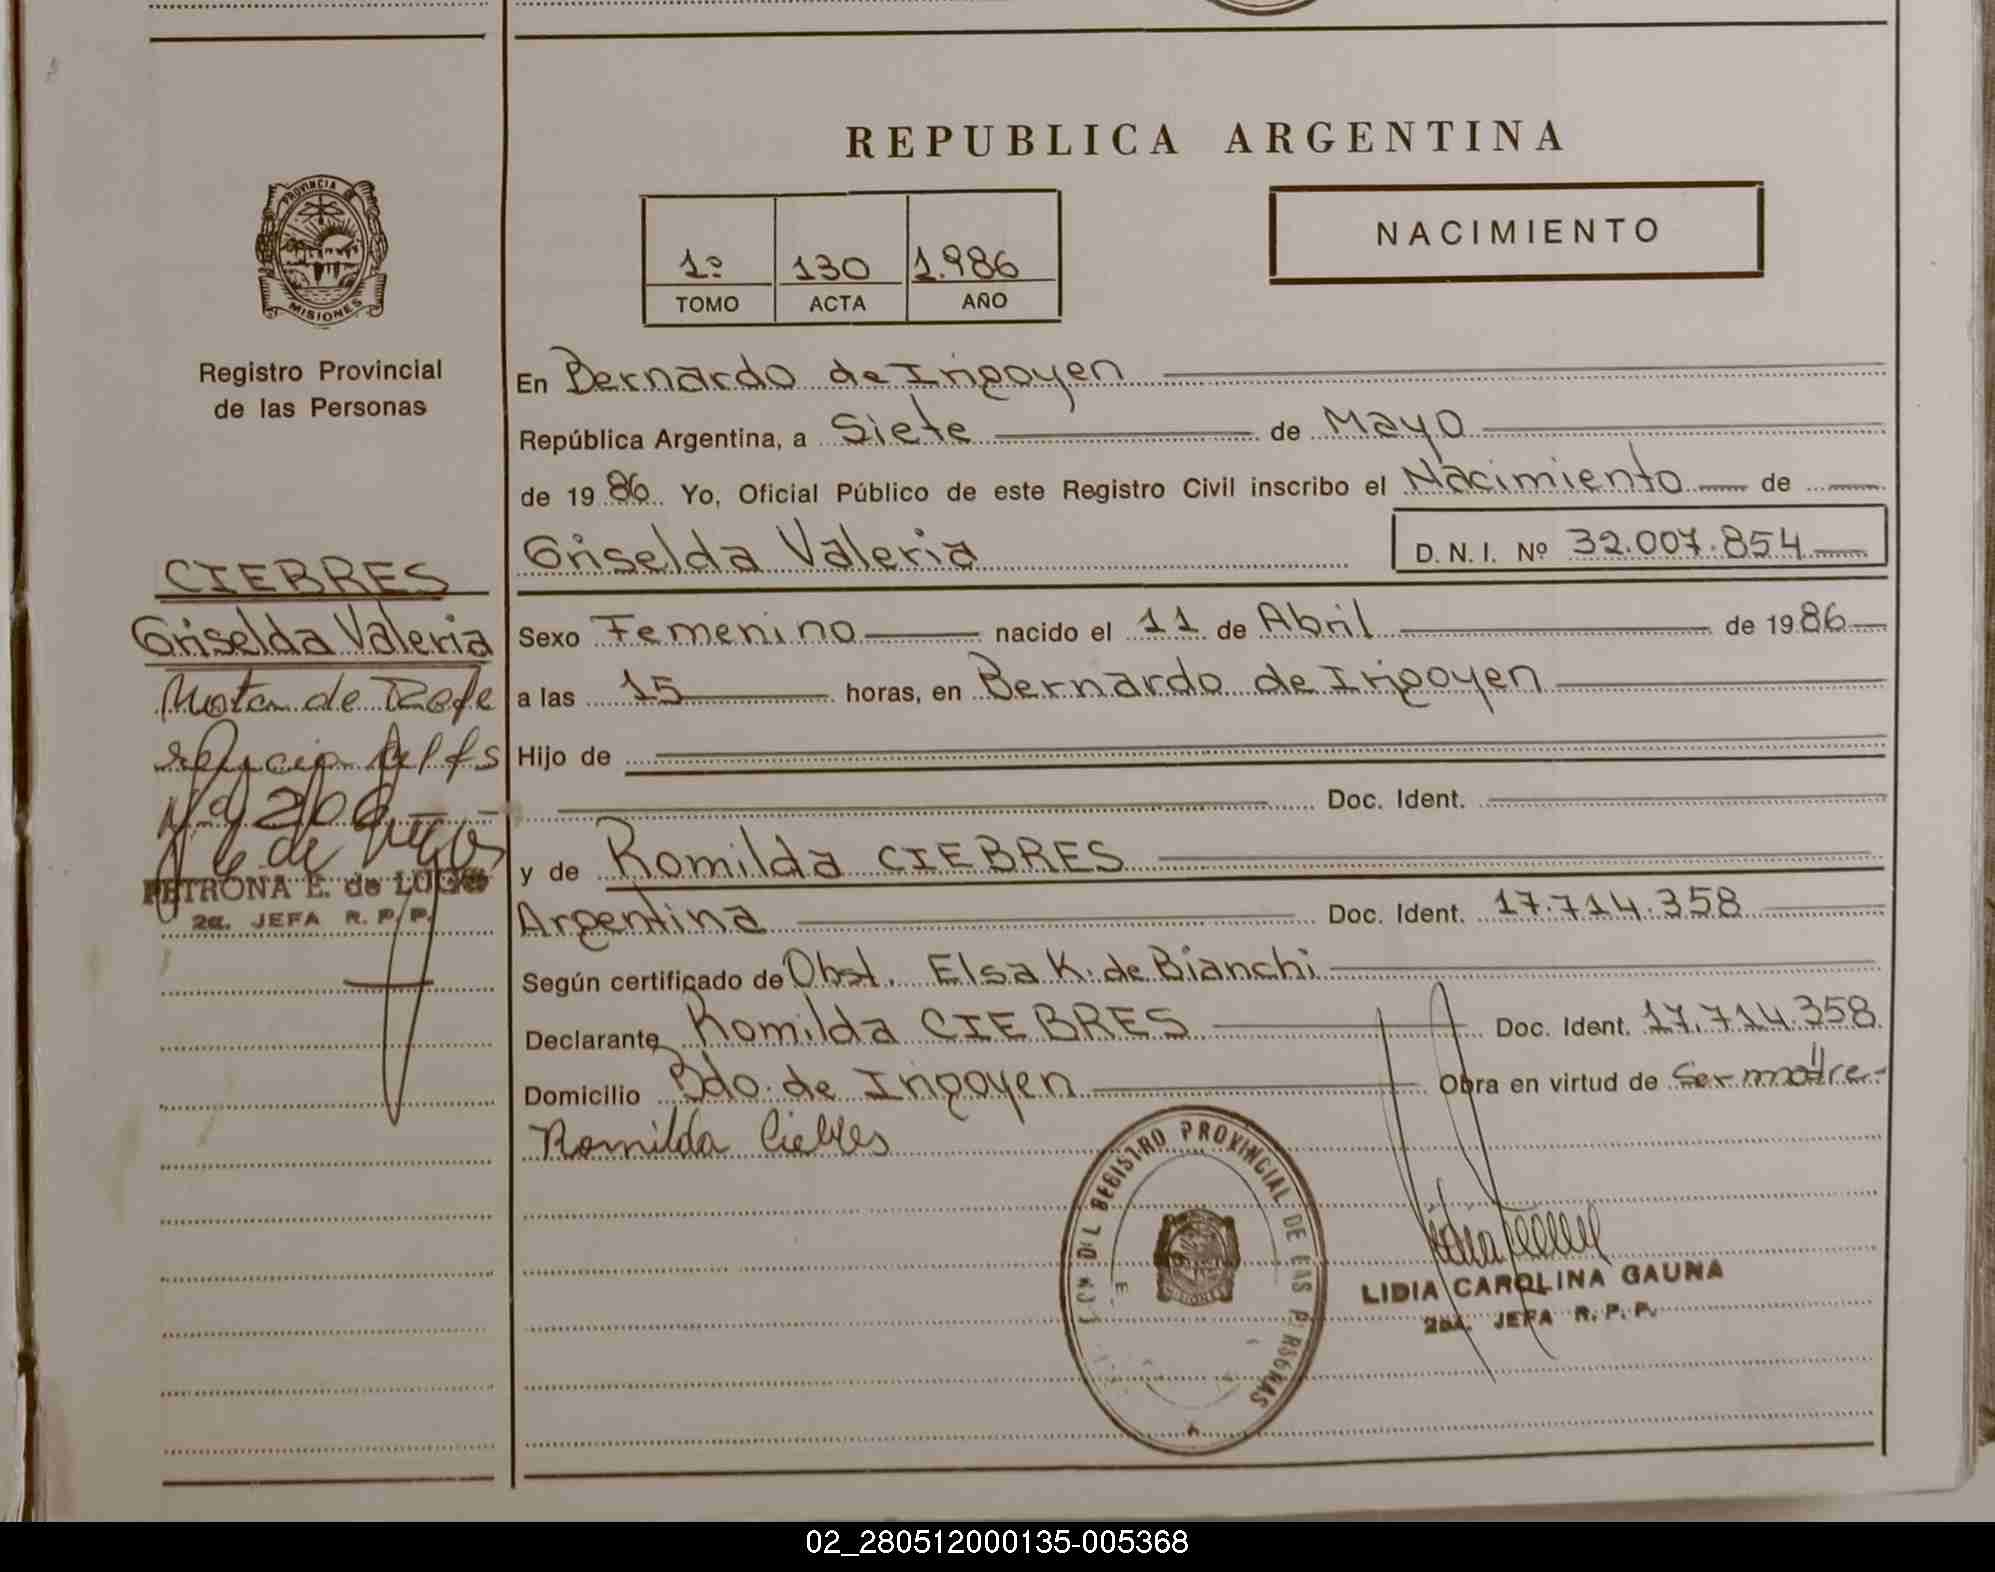 REPUBLICA ARGENTINA
PROVINCIA DE MISIONES
Registro Provincial
de las Personas
1º 130 1.986
TOMO ACTA AÑO
NACIMIENTO
En Bernardo de Irigoyen
República Argentina, a Siete de Mayo
de 1986. Yo, Oficial Público de este Registro Civil inscribo el Nacimiento de
Griselda Valeria D. N. I. Nº 32.007.854
Sexo Femenino nacido el 11 de Abril de 1986
a las 15 horas, en Bernardo de Irigoyen
Hijo de
Doc. Ident.
y de Romilda CIEBRES
Argentina Doc. Ident. 17.714.358
Según certificado de Obst. Elsa K. de Bianchi
Declarante Romilda CIEBRES Doc. Ident. 17.714.358
Domicilio Bdo. de Irigoyen Obra en virtud de Ser madre
Romilda Ciebres
CIEBRES
Griselda Valeria
Nota de Refe
rencia al fs
Nº 206
PETRONA E. de LUGO
2a. JEFA R. P. P.
REGISTRO PROVINCIAL DE LAS PERSONAS
MISIONES
LIDIA CAROLINA GAUNA
2da. JEFA R. P. P.
02_280512000135-005368